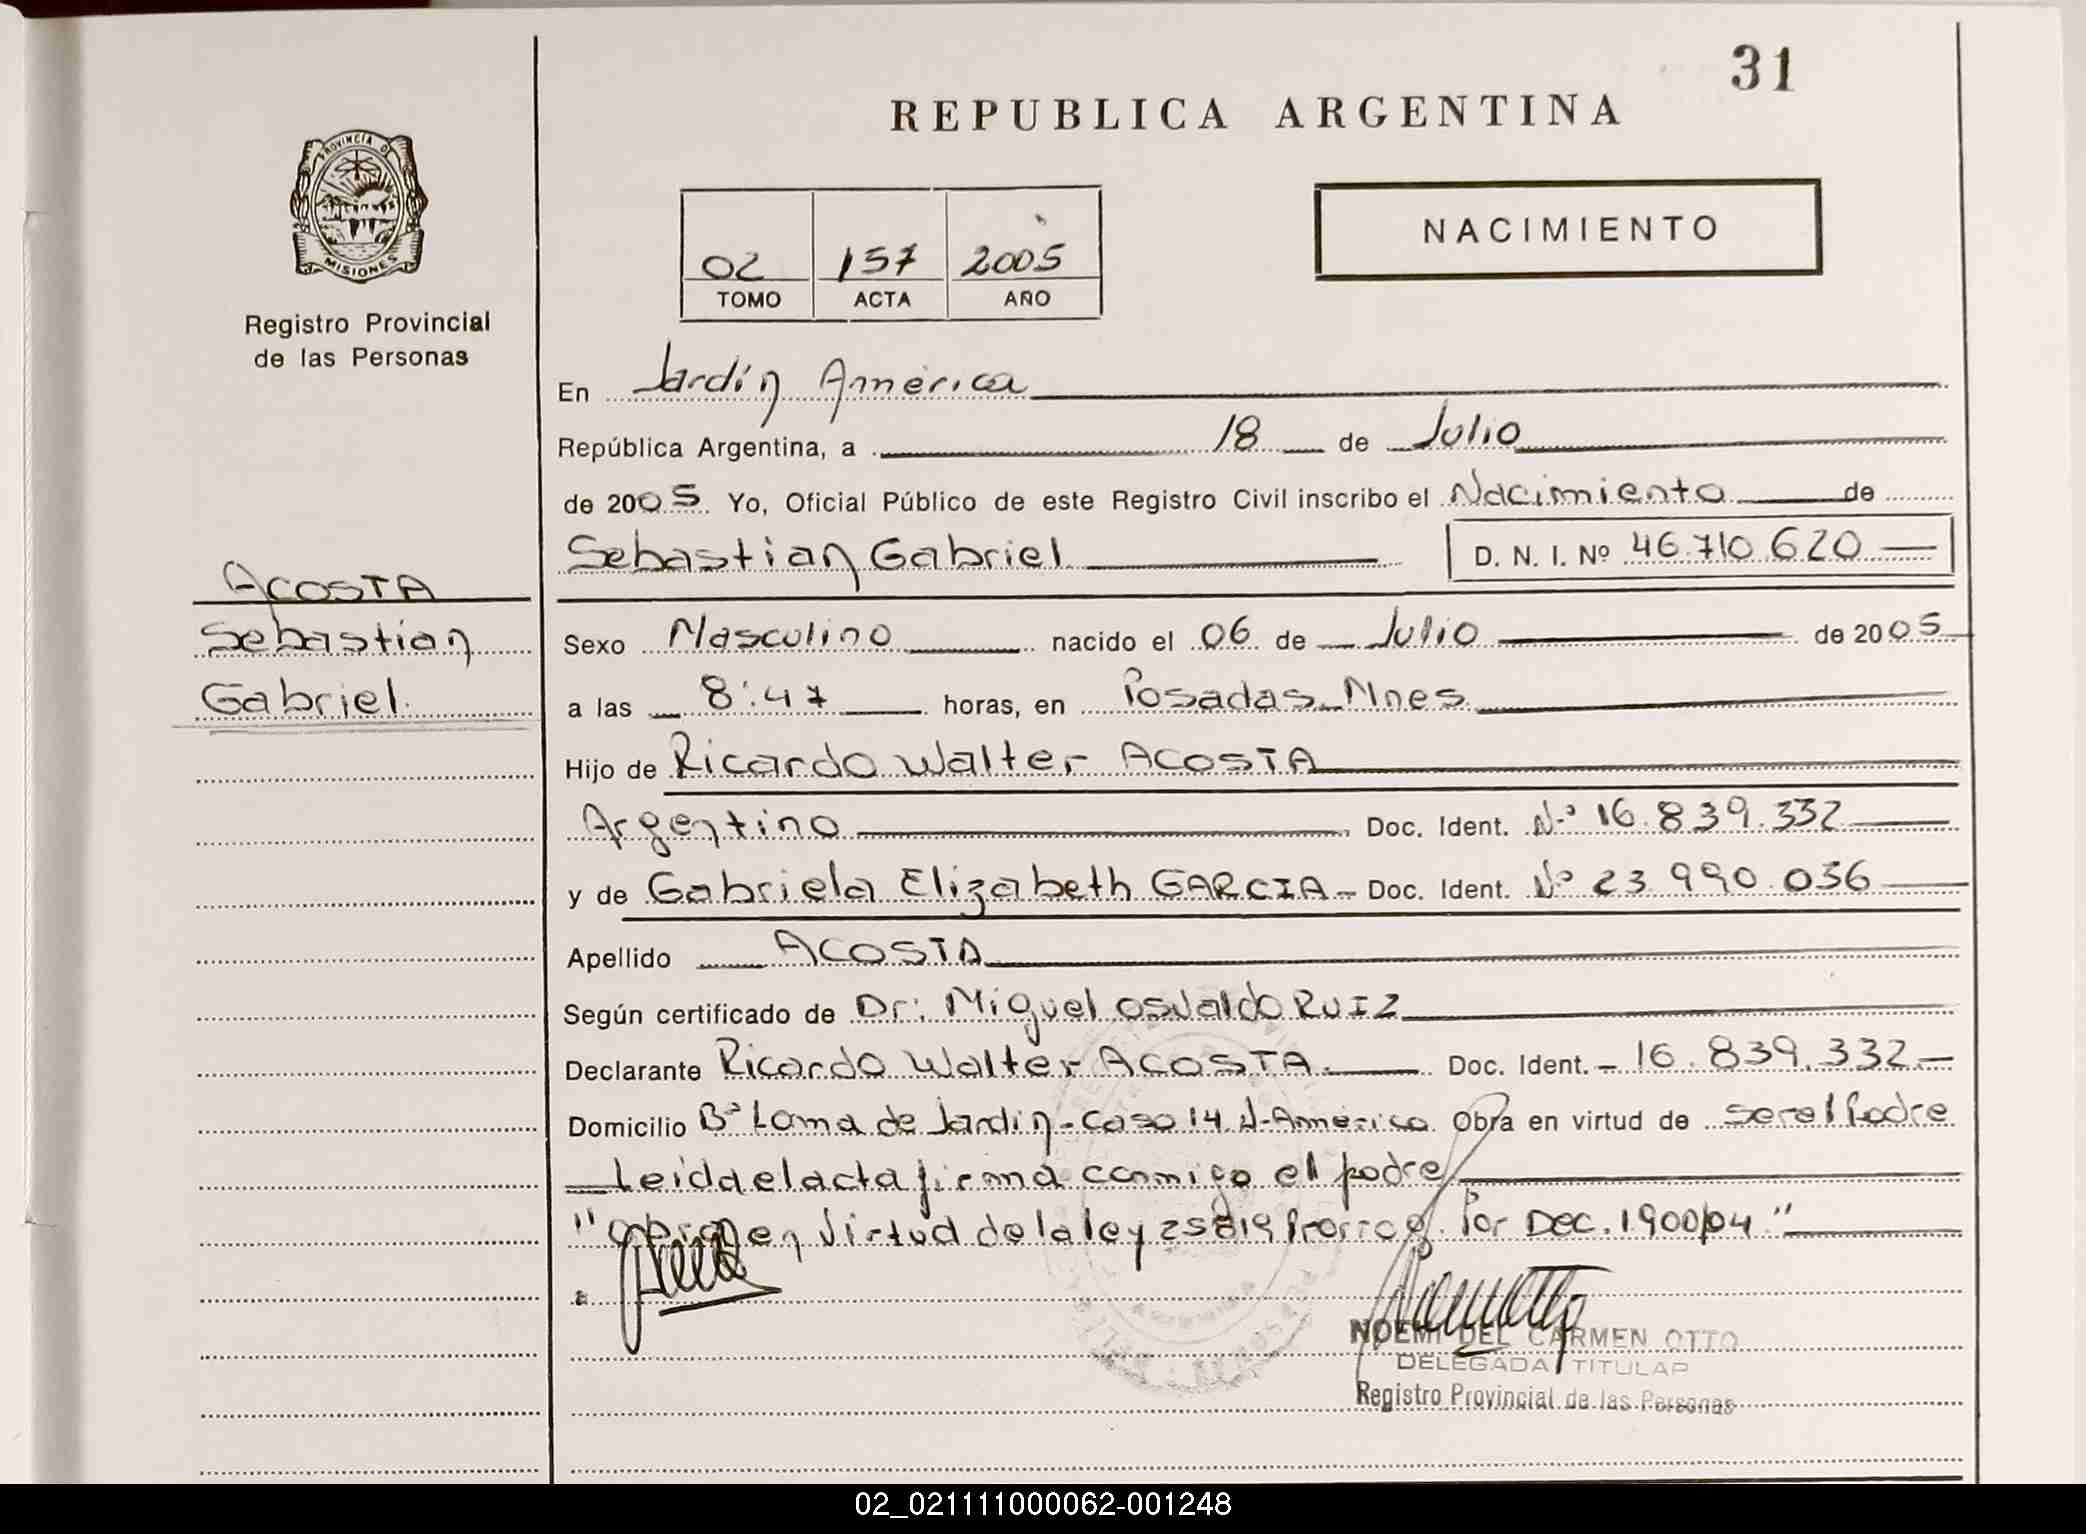 31
REPUBLICA ARGENTINA
PROVINCIA DE
MISIONES
Registro Provincial
de las Personas
NACIMIENTO
02 157 2005
TOMO ACTA AÑO
En Jardín América
República Argentina, a 18 de Julio
de 2005 Yo, Oficial Público de este Registro Civil inscribo el Nacimiento de
Sebastian Gabriel D. N. I. Nº 46.710.620
ACOSTA
Sebastian
Gabriel.
Sexo Masculino nacido el 06 de Julio de 2005
a las 8:47 horas, en Posadas Mnes
Hijo de Ricardo Walter ACOSTA
Argentino Doc. Ident. Nº 16.839.332
y de Gabriela Elizabeth GARCIA - Doc. Ident. Nº 23.990.036
Apellido ACOSTA
Según certificado de Dr: Miguel Osvaldo RUIZ
Declarante Ricardo Walter ACOSTA. Doc. Ident. - 16.839.332.-
Domicilio Bº Loma de Jardín - Casa 14 J-América. Obra en virtud de ser el Padre
Leida el acta firma conmigo el padre
"Obra en virtud de la ley 25819 Prorrog. Por Dec. 1900/04"
NOEMI DEL CARMEN OTTO
DELEGADA TITULAR
Registro Provincial de las Personas
02_021111000062-001248